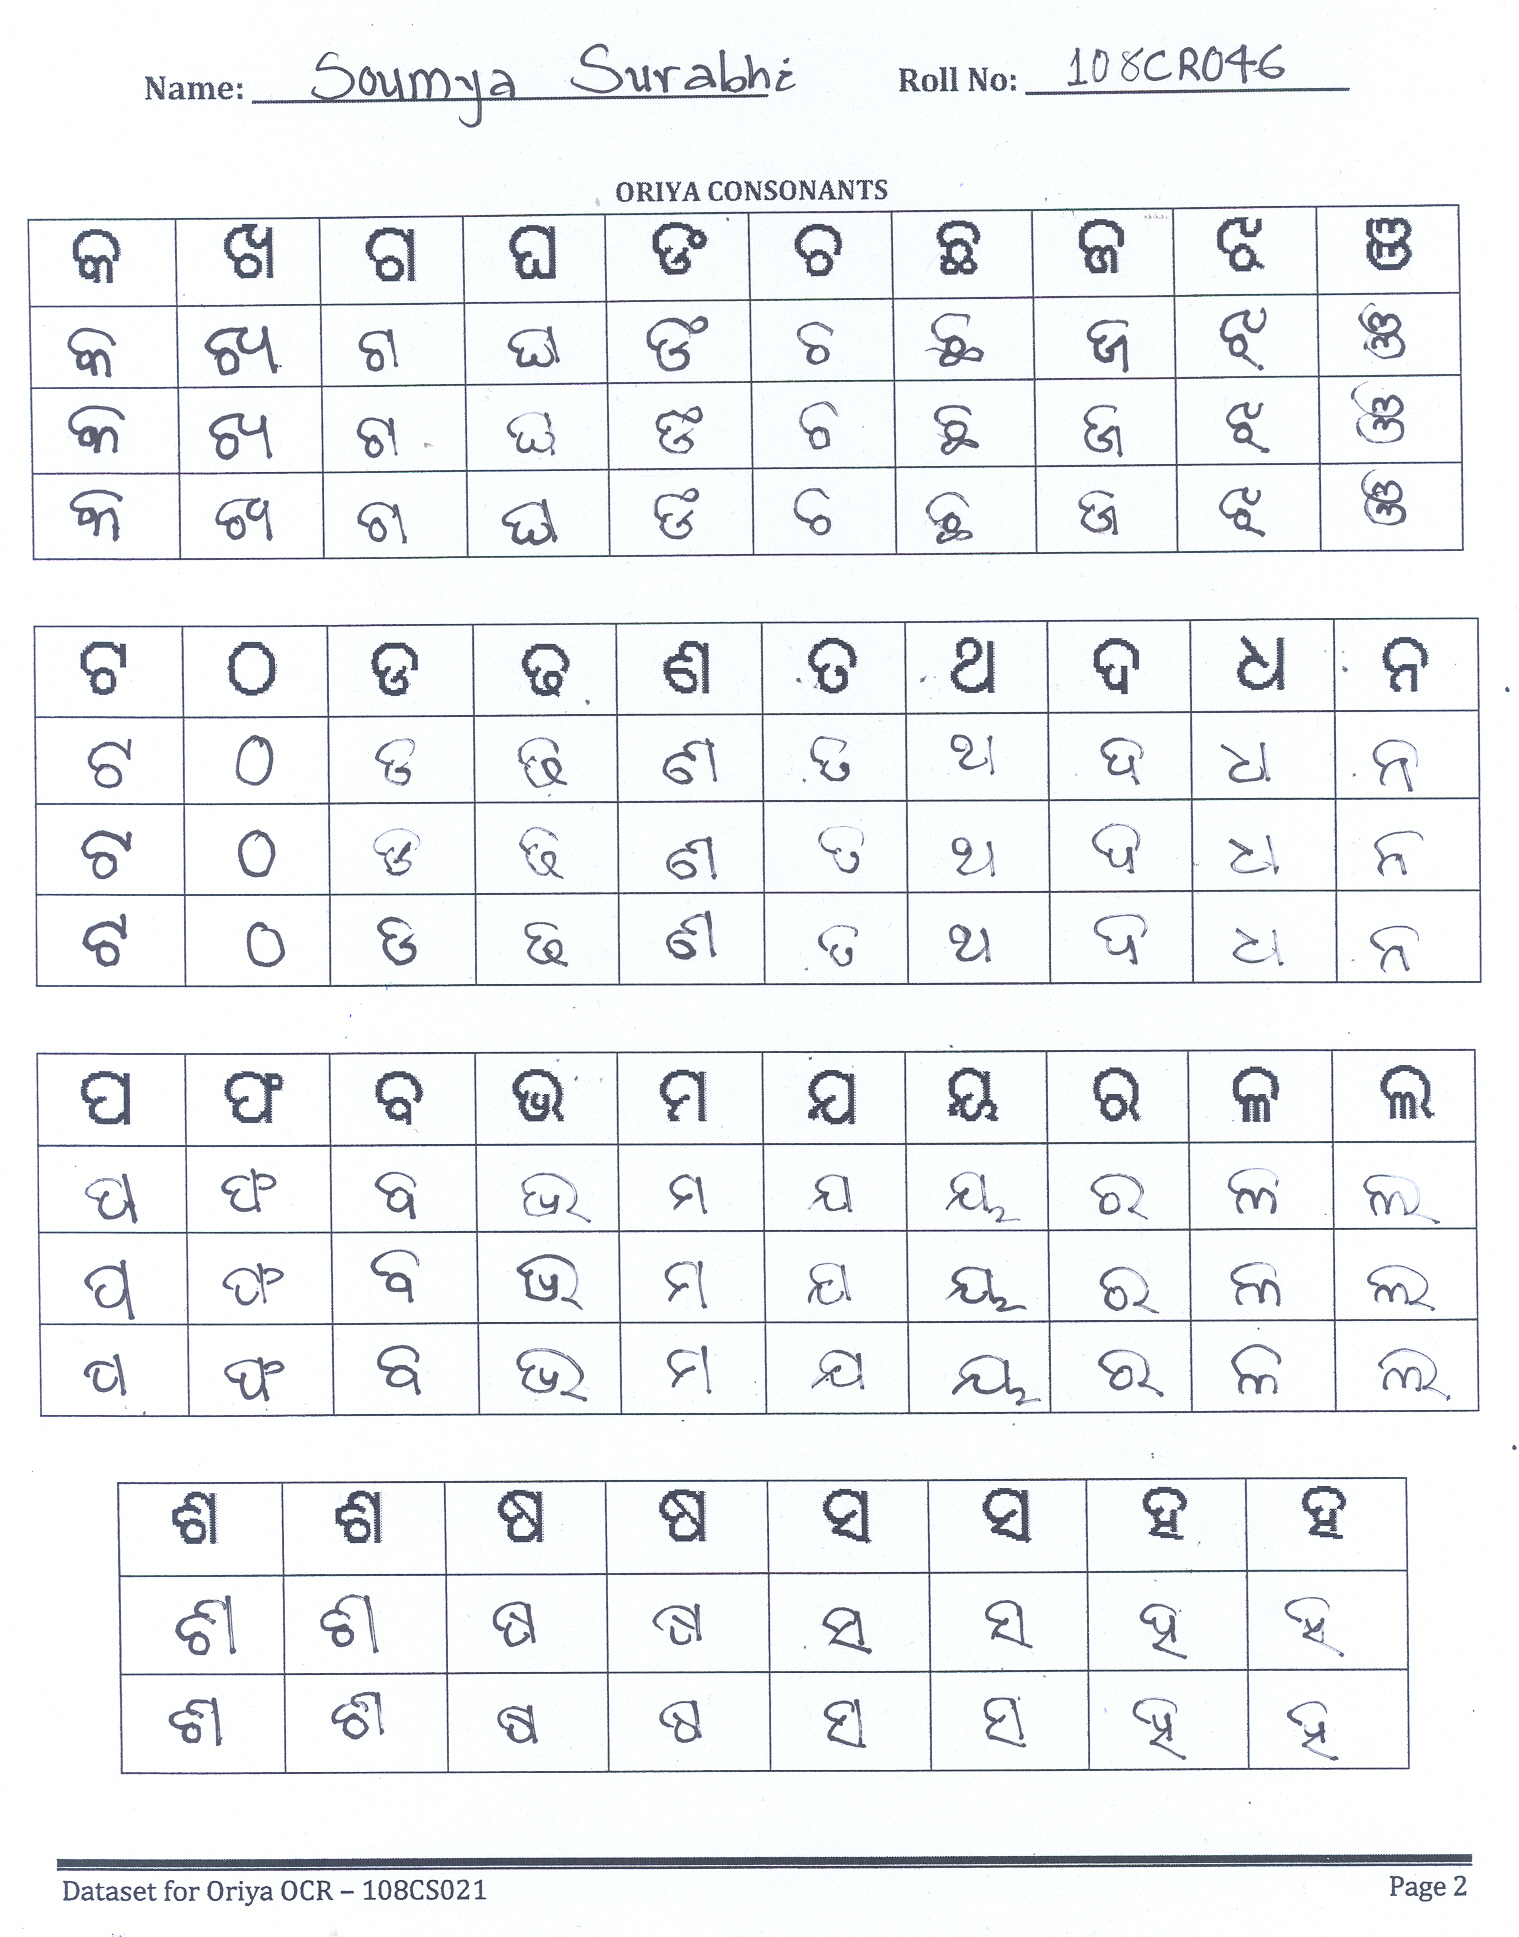 Name: Soumya Surabhi Roll No: 108CR046
ORIYA CONSONANTS
କ ଖ ଗ ଘ ଙ ଚ ଛ ଜ ଝ ଞ
କ ଖ ଗ ଘ ଙ ଚ ଛ ଜ ଝ ଞ
କ ଖ ଗ ଘ ଙ ଚ ଛ ଜ ଝ ଞ
କ ଖ ଗ ଘ ଙ ଚ ଛ ଜ ଝ ଞ
ଟ ଠ ଡ ଢ ଣ ତ ଥ ଦ ଧ ନ
ଟ ଠ ଡ ଢ ଣ ତ ଥ ଦ ଧ ନ
ଟ ଠ ଡ ଢ ଣ ତ ଥ ଦ ଧ ନ
ଟ ଠ ଡ ଢ ଣ ତ ଥ ଦ ଧ ନ
ପ ଫ ବ ଭ ମ ଯ ୟ ର ଳ ଲ
ପ ଫ ବ ଭ ମ ଯ ୟ ର ଳ ଲ
ପ ଫ ବ ଭ ମ ଯ ୟ ର ଳ ଲ
ପ ଫ ବ ଭ ମ ଯ ୟ ର ଳ ଲ
ଶ ଶ ଷ ଷ ସ ସ ହ ହ
ଶ ଶ ଷ ଷ ସ ସ ହ ହ
ଶ ଶ ଷ ଷ ସ ସ ହ ହ
Dataset for Oriya OCR – 108CS021 Page 2